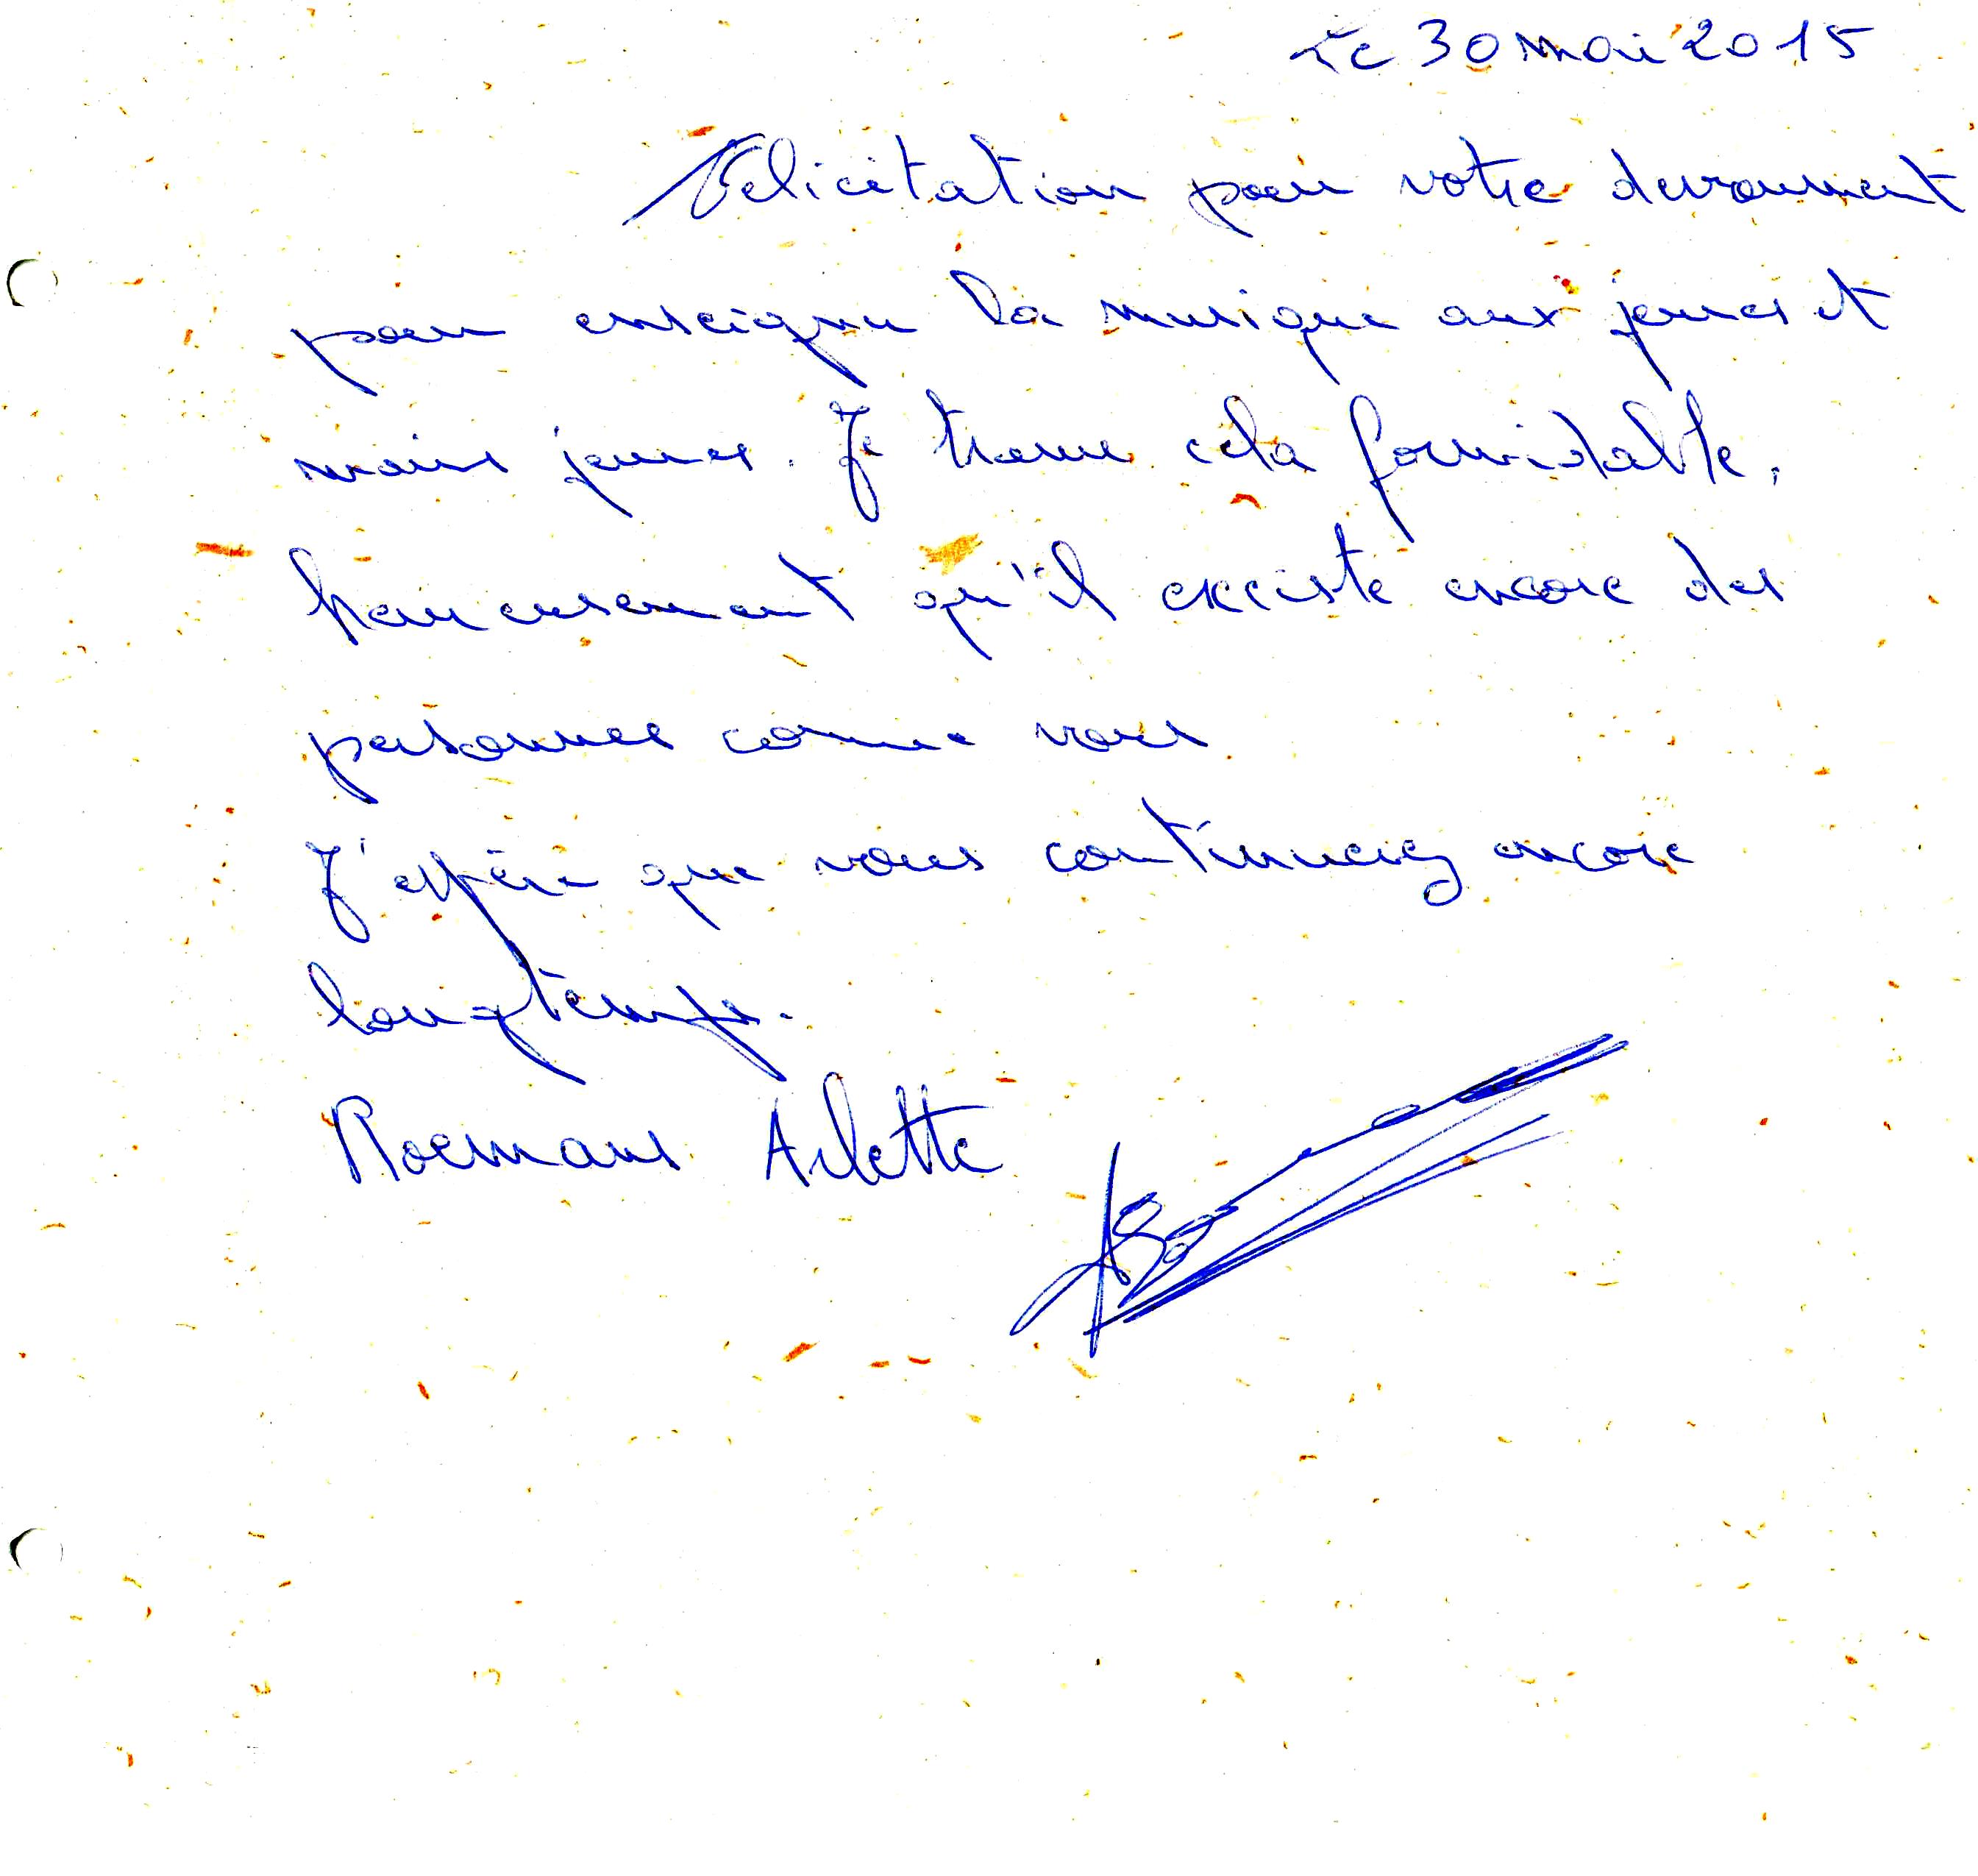 Le 30 mai 2015
Félicitation pour votre devouement
pour enseigner la musique aux jeunes et
moins jeunes. Je trouve cela formidable,
heureusement qu'il exciste encore des
personnes comme vous
J'espère que vous continuerez encore
longtemps.
Roemans Arlette